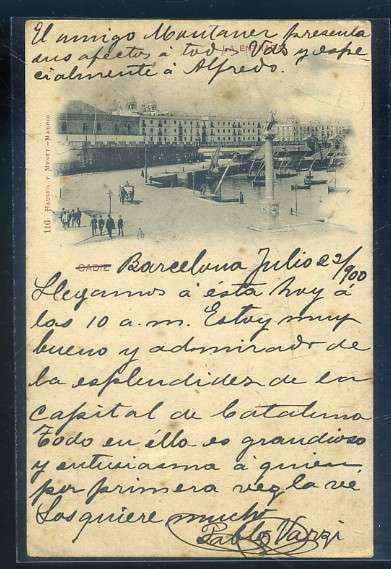 El amigo Montaner presenta
sus afectos á todos Vds y espe
cialmente á Alfredo.
LA EN
116 HAUSER Y MENET.-MADRID
CADIZ Barcelona Julio 23/900
Llegamos á ésta hoy á
las 10 a.m. Estoy muy
bueno y admirado de
la esplendidez de la
capital de Cataluna
Todo en éllo es grandioso
y entusiasma á quien
por primera vez la vé
Los quiere mucho
Pablo